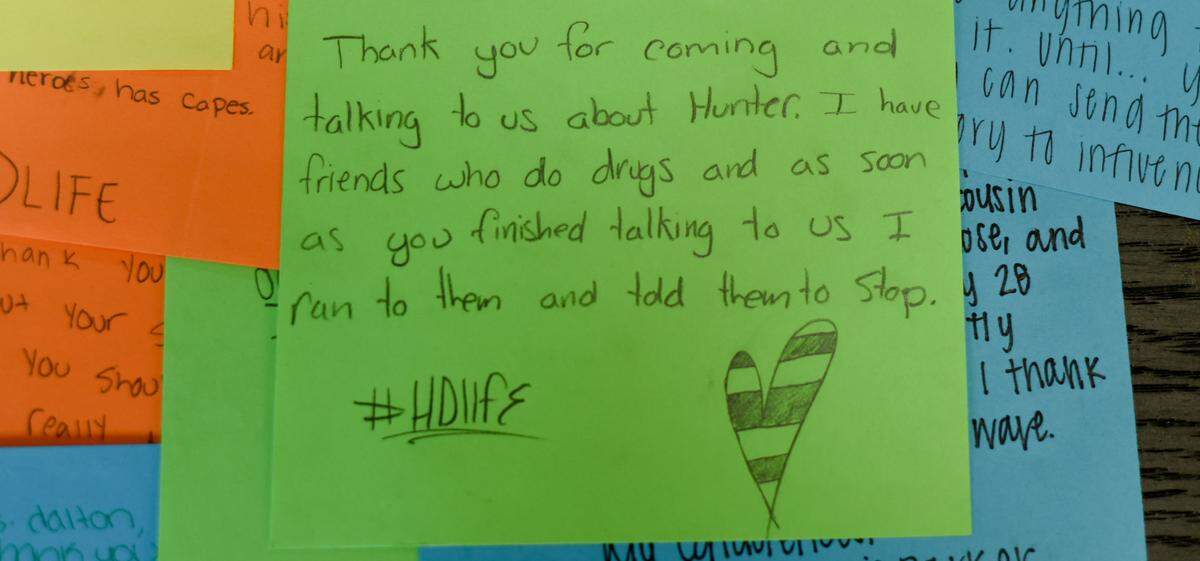 heroes, has capes.
LIFE
Thank you for coming and
talking to us about Hunter. I have
friends who do drugs and as soon
as you finished talking to us I
ran to them and told them to Stop.
#HDlife
You
Your
You
really
dalton,
it. Until...
can send
to
cousin
and
28
I thank